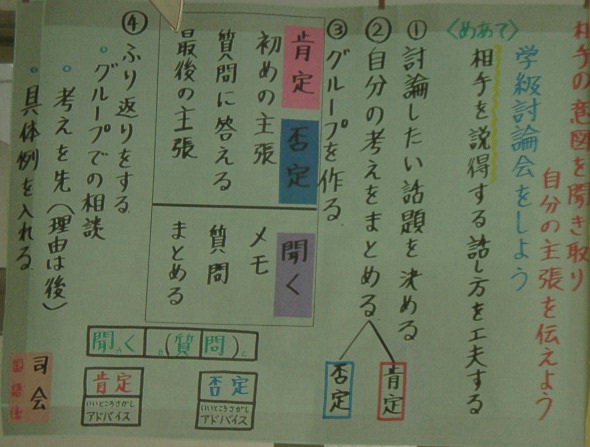 相手の意図を聞き取り
自分の主張を伝えよう
学級討論会をしよう
〈めあて〉
相手を説得する話し方を工夫する
①討論したい話題を決める
②自分の考えをまとめる
肯定
否定
③グループを作る
肯定
否定
初めの主張
質問に答える
最後の主張
聞く
メモ
質問
まとめる
④ふり返りをする
・グループでの相談
・考えを先(理由は後)
・具体例を入れる
聞く(質問)
否定
いいところさがし
アドバイス
肯定
いいところさがし
アドバイス
司会